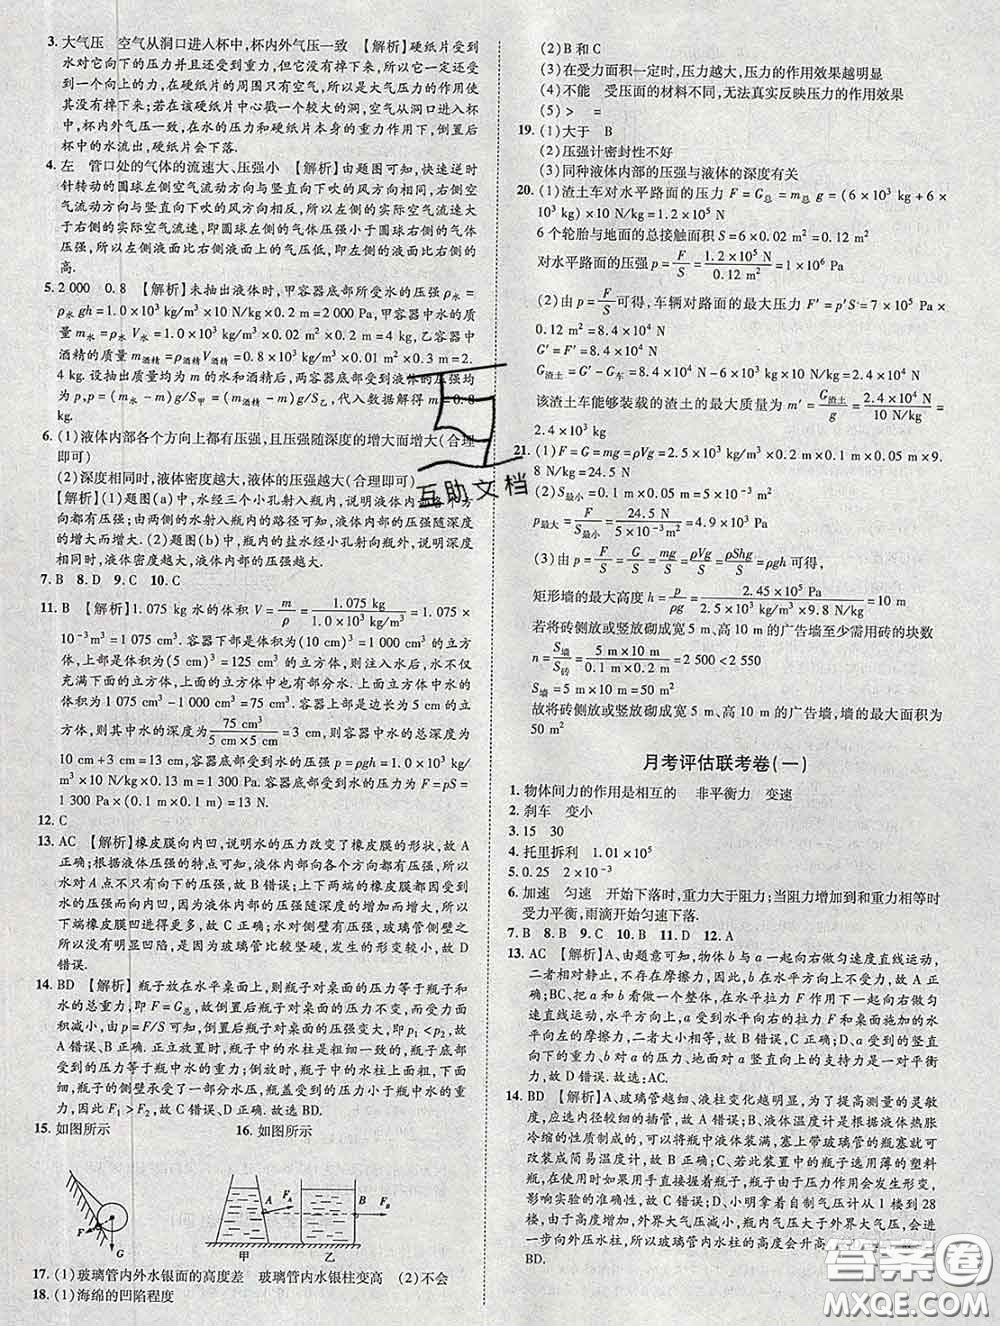 3. 大气压 空气从洞口进入杯中,杯内外气压一致 【解析】硬纸片受到
水对它向下的压力并且还受到重力,但没有掉下来,所以它一定还受
到一个向上的力,在硬纸片的周围只有空气,所以是大气压的作用使
其没有掉下来;若在该硬纸片中心戳一个较大的洞,空气从洞口进入杯
中,杯内外气压一致,在水的压力和硬纸片本身的重力作用下,倒置后
杯中的水流出,硬纸片会下落.
4. 左 管口处的气体的流速大、压强小 【解析】由题图可知,快速逆时
针转动的圆球左侧空气流动方向与竖直向下吹的风方向相同,右侧空
气流动方向与竖直向下吹的风方向相反,所以左侧的实际空气流速大
于右侧的实际空气流速,即圆球左侧的气体压强小于圆球右侧气体
压强,所以左侧液面比右侧液面上的气压低,即左侧的液面比右侧的
高.
5. 2 000 0.8 【解析】未抽出液体时,甲容器底部所受水的压强 p水 =
ρ水 gh = 1.0×10³ kg/m³×10 N/kg×0.2 m = 2 000 Pa,甲容器中水的质
量 m水 = ρ水 V水 = 1.0×10³ kg/m³×0.02 m²×0.2 m = 4 kg,乙容器中
酒精的质量 m酒精 = ρ酒精V酒精 = 0.8×10³ kg/m³×0.01 m²×0.3 m = 2.
4 kg. 设抽出质量均为 m 的水和酒精后,两容器底部受到液体的压强均
为 p,p = (m水 − m)g/S甲 = (m酒精 − m)g/S乙,代入数据解得 m = 0.8
kg.
6. (1)液体内部各个方向上都有压强,且压强随深度的增大而增大(合理
即可)
(2)深度相同时,液体密度越大,液体的压强越大(合理即可)
【解析】(1)题图(a)中,水经三个小孔射入瓶内,说明液体内部各个方
向上都有压强;由两侧的水射入瓶内的路径可知,液体内部的压强随深度
的增大而增大. (2)题图(b)中,瓶内的盐水经小孔射向瓶外,说明深度相
同时,液体密度越大,液体压强越大.
7. B 8. D 9. C 10. C
11. B 【解析】1.075 kg 水的体积 V = m/ρ = 1.075 kg/(1.0×10³ kg/m³) = 1.075×
10⁻³m³ = 1 075 cm³. 容器下部是体积为(10 cm)³ = 1 000 cm³ 的立方
体,上部是体积为(5 cm)³ = 125 cm³ 的立方体,则注入水后,水不仅
充满下面的立方体,上面的立方体中也有部分水. 上面立方体中水的
体积为 1 075 cm³ − 1 000 cm³ = 75 cm³. 容器上部是边长为 5 cm 的立
方体,则其中水的深度为 75 cm³/(5 cm×5 cm) = 3 cm,则容器中水的总深度为
10 cm + 3 cm = 13 cm,则水对容器底部的压强 p = ρgh = 1.0×10³
kg/m³×10 N/kg×0.13 m = 1 300 Pa,水对容器底部的压力 F = pS = 1
300 Pa×0.1 m×0.1 m = 13 N.
12. C
13. AC 【解析】橡皮膜向内凹,说明水的压力改变了橡皮膜的形状,故 A
正确;根据液体压强的特点可知,液体内部向各个方向都有压强,所以
水对 A 点不只有向下的压强,故 B 错误;上下两端的橡皮膜都因受到
水的压强而向内凹,因为液体内部的压强随深度的增加而增大,所以
下端橡皮膜凹进得更多,故 C 正确;水对侧壁有压强,玻璃管侧壁之
所以没有明显凹陷,是因为玻璃管比较坚硬,发生的形变较小,故 D
错误.
14. BD 【解析】瓶子放在水平桌面上,则瓶子对桌面的压力等于瓶子和
水的总重力,即 F = G总,故倒置后瓶子对桌面的压力不变,而受力面
积减小,由 p = F/S 可知,倒置后瓶子对桌面的压强变大,即 p₁ < p₂,故
A 错误、B 正确. 正立放置时,瓶子中的水柱是粗细一致的,则瓶子底
部受到的水的压力等于瓶中水的重力;倒放时,瓶子中的水柱上粗下
细,一部分水压的是瓶子的侧壁,所以瓶子盖受到的压力小于瓶中水的重
力,因此 F₁ > F₂,故 C 错误、D 正确. 故选 BD.
15. 如图所示 16. 如图所示
F G
A F_A B F_B
甲 乙
17. (1)玻璃管内外水银面的高度差 玻璃管内水银柱变高 (2)不会
18. (1)海绵的凹陷程度
(2)B 和 C
(3)在受力面积一定时,压力越大,压力的作用效果越明显
(4)不能 受压面的材料不同,无法真实反映压力的作用效果
(5)> =
19. (1)大于 B
(2)压强计密封性不好
(3)同种液体内部的压强与液体的深度有关
20. (1)渣土车对水平路面的压力 F = G总 = m总 g = (6×10³ kg + 6×
10³ kg)×10 N/kg = 1.2×10⁵ N
6 个轮胎与地面的总接触面积 S = 6×0.02 m² = 0.12 m²
对水平路面的压强 p = F/S = 1.2×10⁵ N/0.12 m² = 1×10⁶ Pa
(2)由 p = F/S 可得,车辆对路面的最大压力 F′ = p′S = 7×10⁵ Pa×
0.12 m² = 8.4×10⁴ N
G′ = F′ = 8.4×10⁴ N
G渣土 = G′ − G车 = 8.4×10⁴ N − 6×10³ kg×10 N/kg = 2.4×10⁴ N
该渣土车能够装载的渣土的最大质量为 m′ = G渣土/g = 2.4×10⁴ N/10 N/kg =
2.4×10³ kg
21. (1)F = G = mg = ρVg = 2.5×10³ kg/m³×0.1 m×0.05 m×0.2 m×9.
8 N/kg = 24.5 N
(2)S最小 = 0.1 m×0.05 m = 5×10⁻³ m²
p最大 = F/S最小 = 24.5 N/(5×10⁻³ m²) = 4.9×10³ Pa
(3)由 p = F/S = G/S = mg/S = ρVg/S = ρShg/S = ρgh 可得,
矩形墙的最大高度 h = p/ρg = 2.45×10⁵ Pa/(2.5×10³ kg/m³×9.8 N/kg) = 10 m
若将砖侧放或竖放砌成宽 5 m、高 10 m 的广告墙至少需用砖的块数
n = S墙/S砖 = 5 m×10 m/(0.1 m×0.2 m) = 2 500 < 2 550
S墙 = 5 m×10 m = 50 m²
故将砖侧放或竖放砌成宽 5 m、高 10 m 的广告墙,墙的最大面积为
50 m².
月考评估联考卷(一)
1. 物体间力的作用是相互的 非平衡力 变速
2. 刹车 变小
3. 15 30
4. 托里拆利 1.01×10⁵
5. 0.25 2×10⁻³
6. 加速 匀速 开始下落时,重力大于阻力;当阻力增加到和重力相等时,
受力平衡,雨滴开始匀速下落.
7. B 8. B 9. C 10. B 11. D 12. A
13. AC 【解析】A、由题意可知,物体 b 与 a 一起向右做匀速直线运动,
二者相对静止,不存在摩擦力,因此 b 在水平方向上不受力,故 A 正
确;BC、把 a 和 b 看做一个整体,在水平力 F 作用下一起向右做匀
速直线运动,整体在水平方向上受到水平向右的拉力和地面对 a 水平
向左的摩擦力,二者大小相等,故 B 错误,C 正确;D、a 受到竖直向
下的重力、b 对 a 的压力、地面对 a 竖直向上的支持力是一对平衡
力,故 D 错误. 故选:AC.
14. BD 【解析】A、玻璃管越细、液柱变化越明显,为了提高测量的灵敏
度,应选内径较细的插管,故 A 错误;B、液体温度计是根据液体热胀
冷缩的性质制成的,可以将瓶中液体装满,塞上带玻璃管的瓶塞就可
改装成简易温度计,故 B 正确;C、若此装置中的瓶子选用薄的塑料
瓶,在使用时如果用手直接握着瓶子,由于压力作用瓶子会发生形变,
影响实验的准确性,故 C 错误;D、小明拿着自制气压计从 1 楼到 28
楼的过程中,由于高度增加,外界大气压减小,瓶内气压大于外界大气压,水会
进一步向外压水柱,所以玻璃管内水柱的高度会升高
BD.
互助文档
答案圈
MXQE.COM